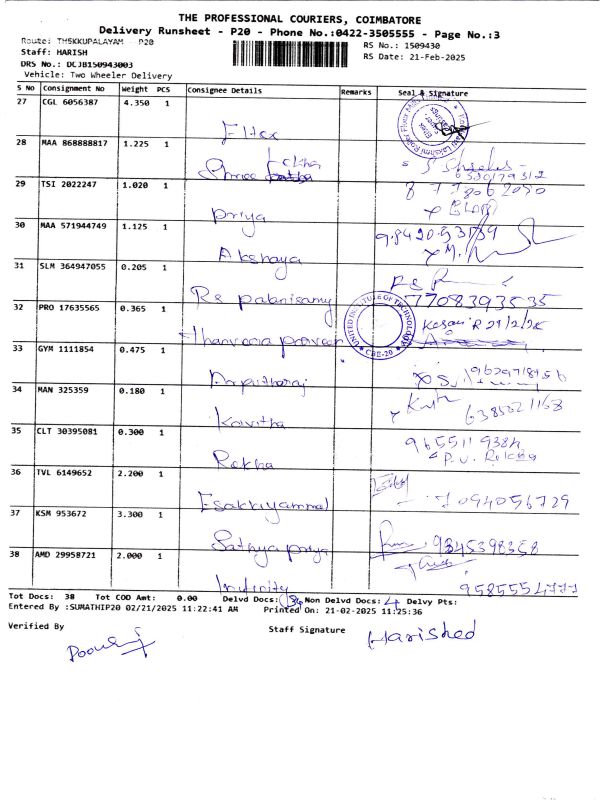 THE PROFESSIONAL COURIERS, COIMBATORE
Delivery Runsheet - P20 - Phone No.:0422-3505555 - Page No.:3
Route: THEKKUPALAYAM - P20
Staff: HARISH
DRS No.: DCJB150943003
Vehicle: Two Wheeler Delivery
RS No.: 1509430
RS Date: 21-Feb-2025
S No Consignment No Weight PCS Consignee Details Remarks Seal & Signature
27 CGL 6056387 4.350 1
28 MAA 868888817 1.225 1
29 TSI 2022247 1.020 1 Priya
30 MAA 571944749 1.125 1 Akshaya
31 SLM 364947055 0.205 1 Rs palanisamy
7708393535
32 PRO 17635565 0.365 1
UNITED INSTITUTE OF TECHNOLOGY
CBE-20
33 GYM 1111854 0.475 1
34 MAN 325359 0.180 1 Kavitha
35 CLT 30395081 0.300 1 Rekha
P.V. Rekha
36 TVL 6149652 2.200 1 Esakkiyammal
7094056729
37 KSM 953672 3.300 1 Sathya priya
9345398358
38 AMD 29958721 2.000 1 Infinity
9585554777
Tot Docs: 38 Tot COD Amt: 0.00 Delvd Docs: 34 Non Delvd Docs: 4 Delvy Pts:
Entered By :SUMATHIP20 02/21/2025 11:22:41 AM Printed On: 21-02-2025 11:25:36
Verified By
Staff Signature